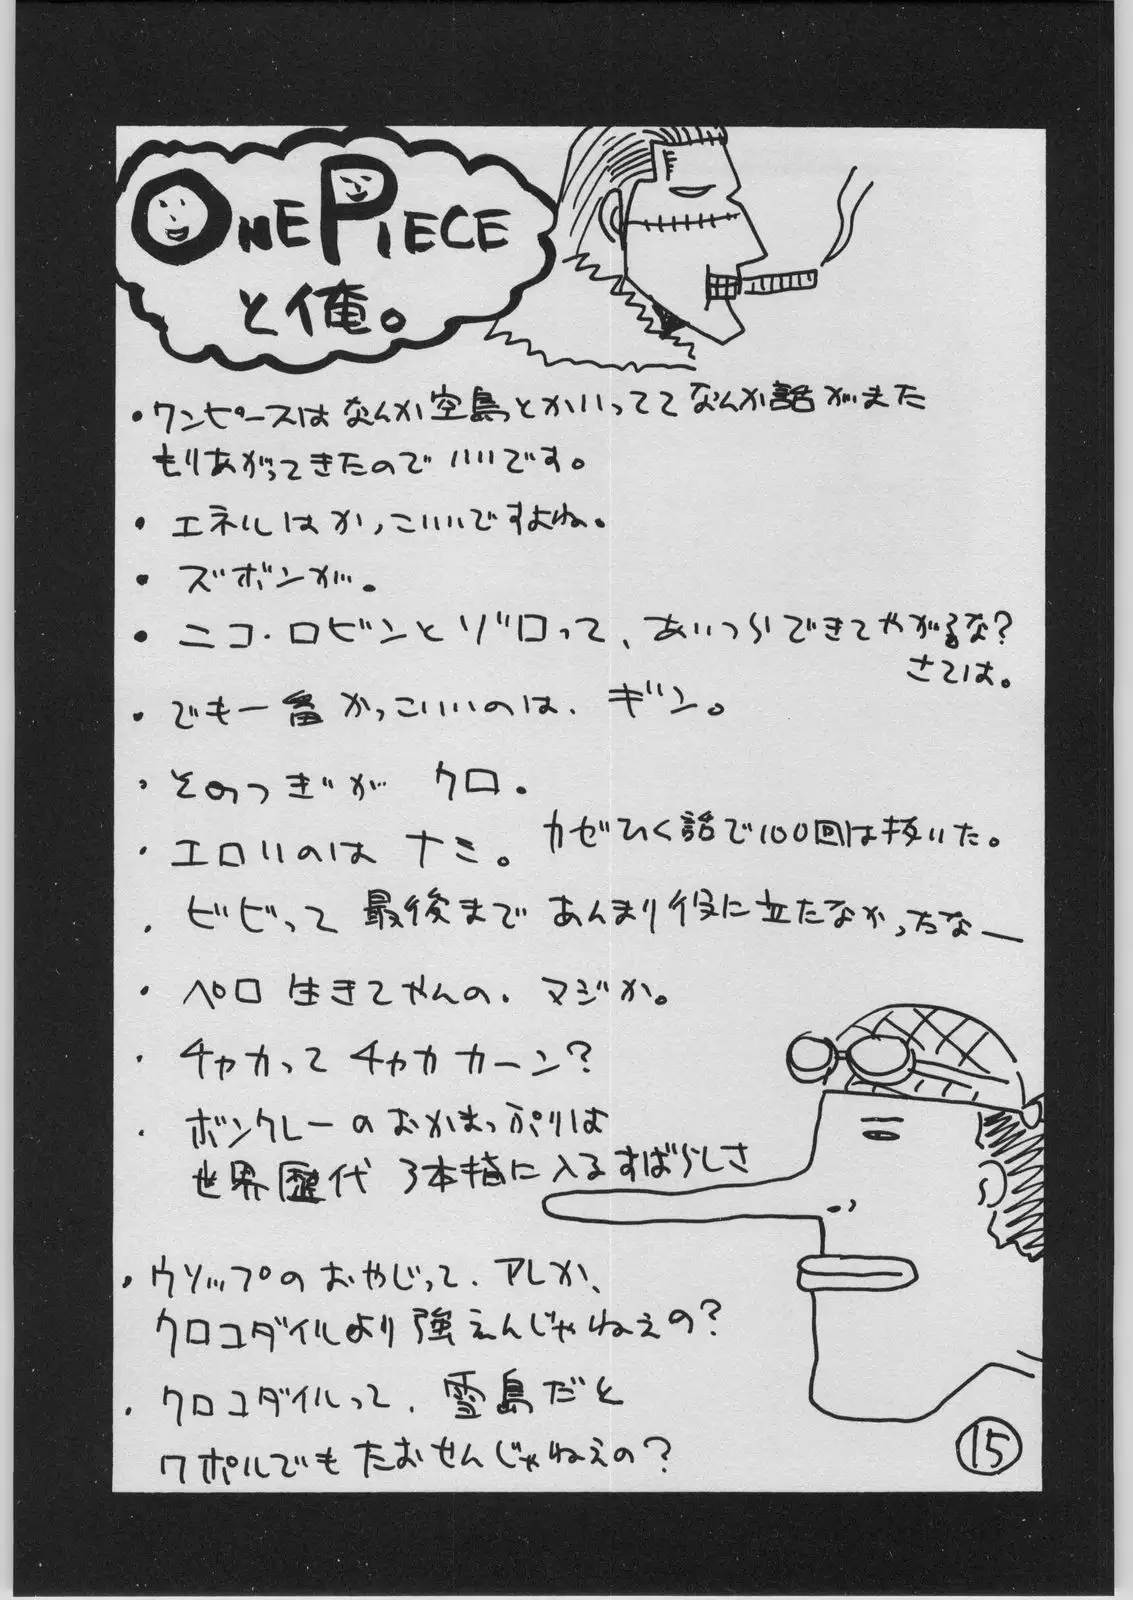 ONE PIECE
と俺。
・ワンピースはなんか空島とかいっててなんか話がまた
もりあがってきたのでいいです。
・エネルはかっこいいですよね。
・ズボンが。
・ニコ・ロビンとゾロって、あいつらできてやがるな?
さては。
・でも一番かっこいいのは、ギン。
・そのつぎが クロ。
・エロいのは ナミ。カゼひく話で100回は抜いた。
・ビビって 最後まで あんまり役に立たなかったなー
・ペロ 生きてやんの。マジか。
・チャカって チャカ カーン?
・ボンクレーのおかまっぷりは
世界歴代 3本指に入るすばらしさ
・ウソップのおやじって、アレか、
クロコダイルより強えんじゃねぇの?
・クロコダイルって、雪島だと
ワポルでもたおせんじゃねえの?
15